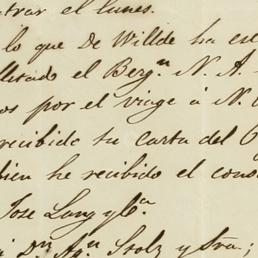 trar el lunes.
lo que De Willde ha es
el Berg.n N. A.
os por el viage á N.
recibido su carta del
bien he recibido el cons
Jose Lang y C.a
Dn. Ag.n Stolz y Sra.;